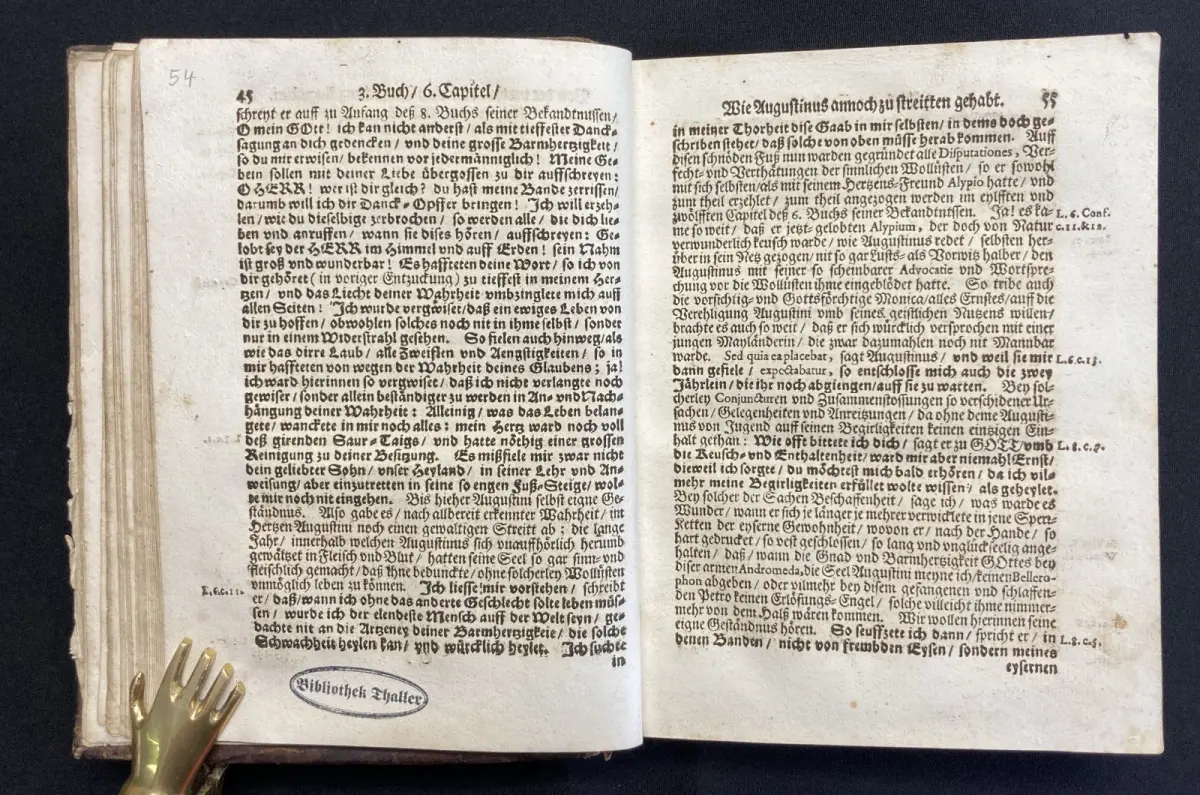 54
45 3. Buch/ 6. Capitel/
schreyt er auff zu Anfang deß 8. Buchs seiner Bekandtnussen/
O mein GOtt! ich kan nicht anderst/ als mit tieffester Danck-
sagung an dich gedencken/ und deine grosse Barmhertzigkeit/
so du mir erwisen/ bekennen vor jedermänniglich! Meine Ge-
bein sollen mit deiner Liebe übergossen zu dir auffschreyen:
O HERR! wer ist dir gleich? du hast meine Bande zerrissen/
darumb will ich dir Danck-Opffer bringen! Ich will erzeh-
len/ wie du dieselbige zerbrochen/ so werden alle/ die dich lie-
ben und anruffen/ wann sie dises hören/ auffschreyen: Ge-
lobt sey der HERR im Himmel und auff Erden! sein Nahm
ist groß und wunderbar! Es haffteten deine Wort/ so ich von
dir gehöret (in voriger Entzuckung) zu tieffest in meinem Her-
tzen/ und das Liecht deiner Wahrheit umbzinglete mich auff
allen Seiten! Ich wurde vergwiset/ daß ein ewiges Leben von
dir zu hoffen/ obwohlen solches noch nit in ihme selbst/ sonder
nur in einem Widerstrahl gesehen. So fielen auch hinweg/ als
wie das dirre Laub/ alle Zweiflen und Aengstigkeiten/ so in
mir haffteten von wegen der Wahrheit deines Glaubens; ja!
ich ward hierinnen so vergwiset/ daß ich nicht verlangte noch
gewiser/ sonder allein beständiger zu werden in An- und Nach-
hängung deiner Wahrheit: Alleinig/ was das Leben belan-
gete/ wanckete in mir noch alles: mein Hertz ward noch voll
deß girenden Saur-Taigs/ und hatte nöthig einer grossen
Reinigung zu deiner Besigung. Es mißfiele mir zwar nicht
dein geliebter Sohn/ unser Heyland/ in seiner Lehr und An-
weisung/ aber einzutretten in seine so engen Fuß-Steige/ wol-
te mir noch nit eingehen. Bis hieher Augustini selbst eigne Ge-
ständnus. Also gab es/ nach allbereit erkennter Wahrheit/ im
Hertzen Augustini noch einen gewaltigen Streitt ab: die lange
Jahr/ innerhalb welchen Augustinus sich unauffhörlich herumb
gewältzet in Fleisch und Blut/ hatten seine Seel so gar sinn- und
fleischlich gemacht/ daß Ihne bedunckte/ ohne solcherley Wollüsten
unmöglich leben zu können. Ich liesse mir vorstehen/ schreibt
L.6.c.11.
er/ daß/ wann ich ohne das anderte Geschlecht solte leben müs-
sen/ wurde ich der elendeste Mensch auff der Welt seyn/ ge-
dachte nit an die Artzeney deiner Barmhertzigkeit/ die solche
Schwachheit heylen kan/ und würcklich heylet. Ich suchte
in
Bibliothek Thaller
Wie Augustinus annoch zu streitten gehabt. 55
in meiner Thorheit dise Gaab in mir selbsten/ in deme doch ge-
schriben stehet/ daß solche von oben müsse herab kommen. Auff
disen schnöden Fuß nun warden gegründet alle Disputationes, Ver-
fecht- und Verthätungen der sinnlichen Wollüsten/ so er sowohl
mit sich selbsten/ als mit seinem Hertzens-Freund Alypio hatte/ und
zum theil erzehlet/ zum theil angezogen werden im eylfften und
zwölfften Capitel deß 6. Buchs seiner Bekandtntssen. Ja! es ka-
L.6. Conf.
me so weit/ daß er jetzt-gelobten Alypium, der doch von Natur
c.11.&12.
verwunderlich keusch warde/ wie Augustinus redet/ selbsten her-
über in sein Netz gezogen/ nit so gar Lusts- als Vorwitz halber/ den
Augustinus mit seiner so scheinbarer Advocatie und Wortspre-
chung vor die Wollüsten ihme eingeblödet hatte. So tribe auch
die vorsichtig- und Gottsförchtige Monica/ alles Ernstes/ auff die
Verehligung Augustini umb seines geistlichen Nutzens willen/
brachte es auch so weit/ daß er sich würcklich versprochen mit einer
jungen Mayländerin/ die zwar dazumahlen noch nit Mannbar
warde. Sed quia ea placebat, sagt Augustinus/ und weil sie mir
L.6.c.13.
dann gefiele/ expectabatur, so entschlosse mich auch die zwey
Jährlein/ die ihr noch abgiengen/ auff sie zu warten. Bey sol-
cherley Conjuncturen und Zusammenstossungen so verschidener Ur-
sachen/ Gelegenheiten und Anreitzungen/ da ohne deme Augusti-
nus von Jugend auff seinen Begirligkeiten keinen eintzigen Ein-
halt gethan: Wie offt bittete ich dich/ sagt er zu GOTT/ umb
L.8.c.7.
die Keusch- und Enthaltenheit/ ward mir aber niemahl Ernst/
dieweil ich sorgte/ du möchtest mich bald erhören/ da ich vil-
mehr meine Begirligkeiten erfüllet wolte wissen/ als geheylet.
Bey solcher der Sachen Beschaffenheit/ sage ich/ was warde es
Wunder/ wann er sich je länger je mehrer verwicklete in jene Sperr-
Ketten der eyserne Gewohnheit/ wovon er/ nach der Hande/ so
hart gedrucket/ so vest geschlossen/ so lang und unglückseelig ange-
halten/ daß/ wann die Gnad und Barmhertzigkeit GOttes bey
diser armen Andromeda, die Seel Augustini meyne ich/ keinen Bellero-
phon abgeben/ oder vilmehr bey disem gefangenen und schlaffen-
den Petro keinen Erlösungs-Engel/ solche villeicht ihme nimmer-
mehr von dem Halß wären kommen. Wir wollen hierinnen seine
eigne Geständnus hören. So seuffzete ich dann/ spricht er/ in
L.8.c.5.
denen Banden/ nicht von frembden Eysen/ sondern meines
eysernen